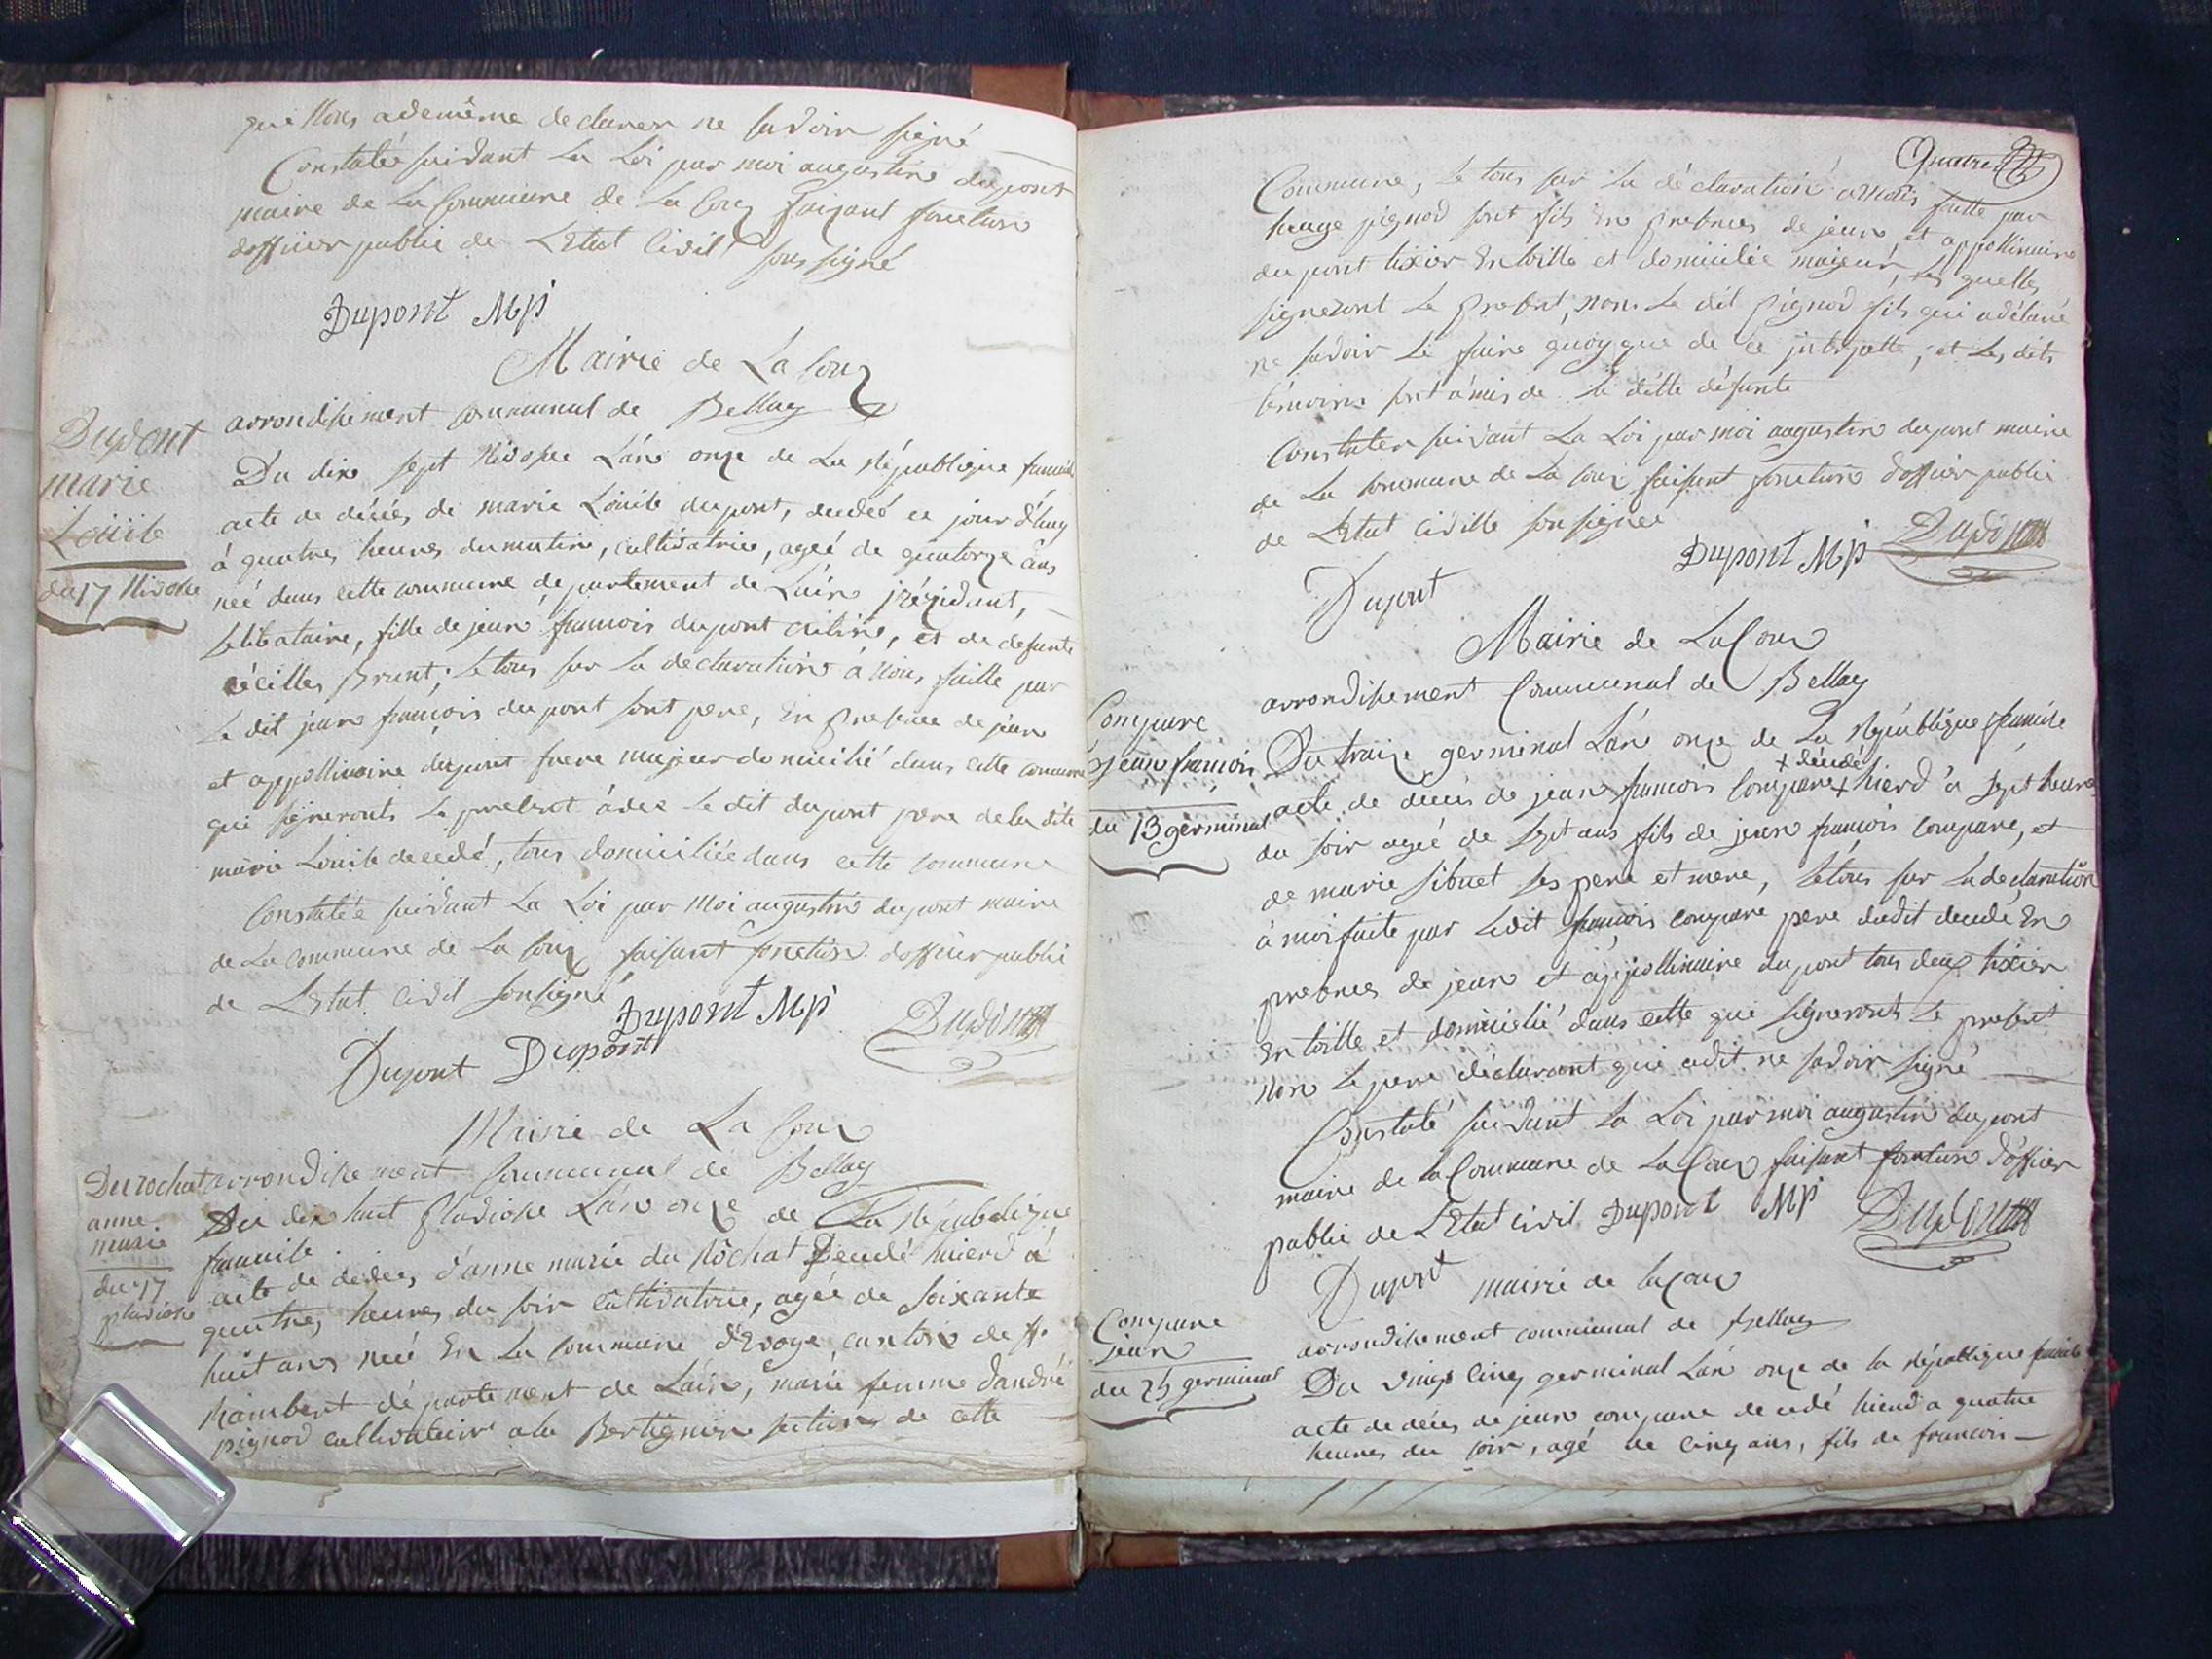 qui Nous ademême declarer ne savoir signé
Constatée suivant La Loi par moi augustin dupont
maire de La Commune de La Coux faizant fonction
dofficier public de LEtat Civil sous signé
Dupont Mpi
Mairie de La Coux
arrondissement communal de Bellay
Dupont
marie
Louise
du 17 Nivose
Du dix sept Nivose Lan onze de La République francaise
acte de décés de marie Louise dupont, decedeé ce jour d'huy
á quatres heures du matin, cultivatrice, ageé de quatorze ans
neé dans cette commune departement de Lain, rézidant,
selibataire, fille de jean francois dupont cultiv, et de defunte
cécilles Brunt; le tous sur la declaration á Nous faitte par
Le dit jean francois dupont sont pere, En presence de jean
et appollinaire dupont frere majeur domicilié dans cette commune
qui signeronts Le present ávec Le dit dupont pere de la dite
marie Louise decedé, tous domiciliée dans cette commune
Constatée suivant La Loi par Moi augustin dupont maire
de La commune de La Coux faisant fonction dofficier public
de LEtat Civil sousigné
Dupont Mpi
Dupont Dupont
Dupont
Mairie de La Coux
arrondissement Communal de Bellay
Du rochat
anne
marie
du 17
pluviose
Du dix huit Pluviose Lan onze de La République
francaise
acte de décées, d'anne marie du Rochat Decedé hierd á
quattres heures du soir cultivatrice, agée de soixante
huit ans neé En La commune d'Evoge, canton de st
Rambert département de Lain, marié femme dandré
pignod cultivateur a la Bertignere section de cette
Commune, Le tous sur La déclaration a Moi faitte par
pignod sont fils En presences de jean, et appollinaire
dupont tixier En toille et domicilée majeur, les quelles
signeront Le present, non Le dit Pignod fils qui a déclaré
ne savoir Le faire quoyque de ce jnterpelle, et Les dits
témoins sont ámis de la ditte défunte
Constater suivant La Loi par moi augustin dupont maire
de La commune de La Coux faisant fonction d'officier public
de LEtat Civille sousigneé
Dupont Mpi Dupont
Dupont
Mairie de La Coux
arrondissement Communal de Bellay
Compare
jean francois
du 13 germinal
Du traize germinal Lan onze de La République francaise
+ décedé
acte de decés de jean francois Compare + hierd á sept heures
du soir ageé de sept ans fils de jean francois compare, et
de marie Sibuet ses pere et mere, le tous sur la declaration
á moi faite par Ledit francois compare pere dudit decedé En
presences de jean et appollinaire dupont tous deux tixier
En toille et domicilié dans cette qui signeronts Le present
non Le pere déclaraont qui adit ne savoir signé
Constaté suivant La Loi par moi augustin dupont
maire de la Commune de La Coux faisant fonction d'officier
public de LEtat Civil Dupont Mpi Dupont
Dupont mairie de la Coux
arrondissement communal de Bellay
Compare
jean
du 25 germinal
Du vingt cinq germinal Lan onze de la République francaise
acte de décés de jean compare decedé hierd a quatre
heures du soir, agé de cinq ans, fils de francois